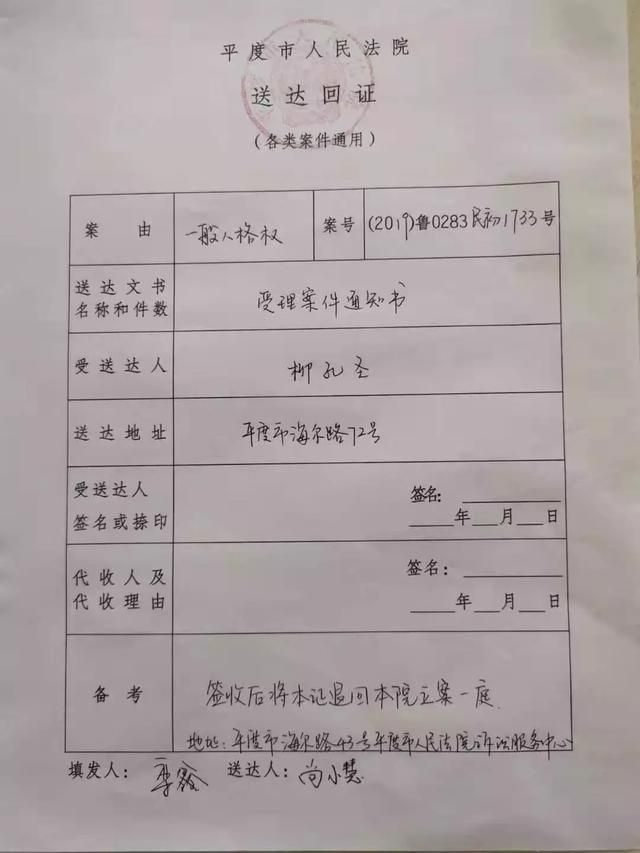 平度市人民法院
送达回证
(各类案件通用)
案由 一般人格权 案号 (2019)鲁0283民初1733号
送达文书
名称和件数 受理案件通知书
受送达人 柳孔圣
送达地址 平度市海尔路72号
受送达人 签名:
签名或捺印 年 月 日
代收人及 签名:
代收理由 年 月 日
备考 签收后将本证退回本院立案一庭.
地址:平度市海尔路43号平度市人民法院诉讼服务中心
填发人: 送达人:尚小慧